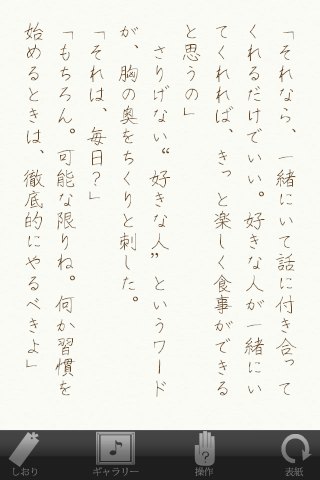 「それなら、一緒にいて話に付き合って
くれるだけでいい。好きな人が一緒にい
てくれれば、きっと楽しく食事ができる
と思うの」
　さりげない“好きな人”というワード
が、胸の奥をちくりと刺した。
「それは、毎日？」
「もちろん。可能な限りね。何か習慣を
始めるときは、徹底的にやるべきよ」
しおり
ギャラリー
操作
表紙